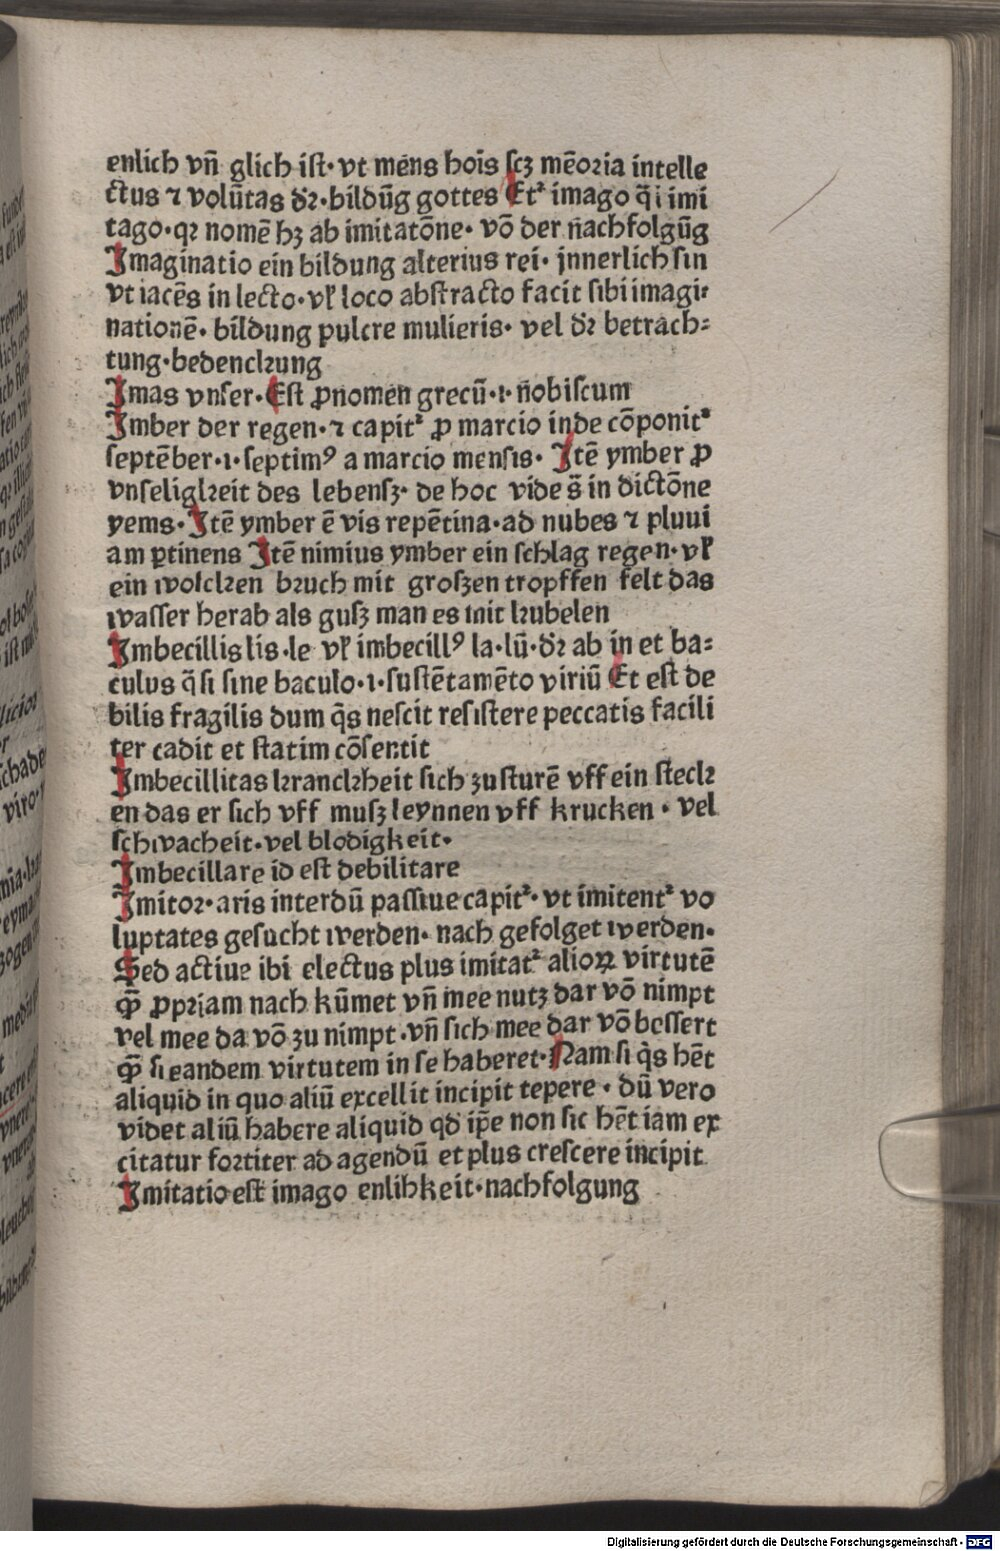 enlich vñ glich ist· vt mens hoı̄s scꝫ mēoꝛia intelle
ctus ⁊ volūtas dꝛ̄·bildūg gottes Etꝰ imago q̄i imi
tago·qꝛ nomē hꝫ ab imitatōne· vō der nachfolgūg
Imaginatio ein bildung alterius rei· jnnerlich sin
vt iacēs in lecto·vl̓ loco abstracto facit sibi imagi⸗
nationē· bildung pulcre mulieris· vel dꝛ̄ betrach⸗
tung·bedenckung
Imas vnser·Est ꝓnomen grecū·ı·nobiscum
Imber der regen·⁊ capitᷣ ꝓ marcio inde cōponitᷣ
septēber·ı·septimꝰ a marcio mensis· Itē ymber ꝓ
vnseligkeit des lebensꝫ· de hoc vide s̄ in dictōne
yems·Itē ymber ē vis repētina·ad nubes ⁊ pluui
am ꝑtinens Itē nimius ymber ein schlag regen·vl̓
ein wolcken bruch mit groſzen tropffen felt das
wasser herab als guſz man es mit kubelen
Imbecillis lis·le vl̓ imbecillꝰ la·lū·dꝛ̄ ab in et ba⸗
culus q̄si sine baculo·ı·sustētamēto viriū Et est de
bilis fragilis dum q̄s nescit resistere peccatis facili
ter cadit et statim cōsentit
Imbecillitas kranckheit sich zu sturē vff ein steck
en das er sich vff muſz leynnen vff krucken · vel
schwacheit·vel blodigkeit·
Imbecillare id est debilitare
Imitoꝛ·aris interdū passiue capitᷣ· vt imitentᷣ vo
luptates gesucht werden· nach gefolget werden·
Sed actiue ibi electus plus imitatᷣ alioꝝ virtutē
q̄ꝫ ꝓpꝛiam nach kūmet vñ mee nutz dar vō nimpt
vel mee da vō zu nimpt·vñ sich mee dar vō bessert
q̄ꝫ si eandem virtutem in se haberet·Nam si q̄s hēt
aliquid in quo aliū excellit incipit tepere · dū vero
videt aliū habere aliquid qd ip̄e non sic hēt iam ex
citatur foꝛtiter ad agendū et plus crescere incipit
Imitatio est imago enlihkeit·nachfolgung
Digitalisierung gefördert durch die Deutsche Forschungsgemeinschaft - DFG